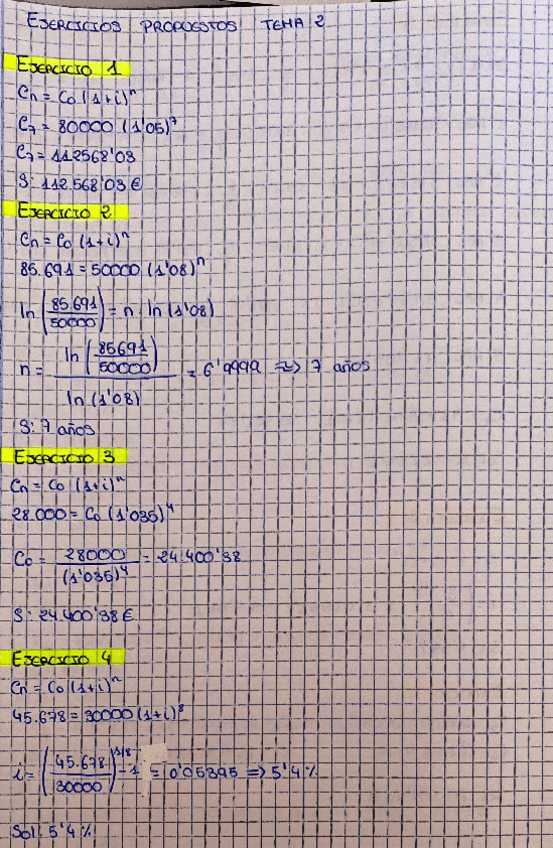 EJERCICIOS PROPUESTOS TEMA 2
EJERCICIO 1
Cn = Co (1+i)^n
C7 = 80000 (1'05)^7
C7 = 112568'03
S: 112.568'03 €
EJERCICIO 2
Cn = Co (1+i)^n
85.691 = 50000 (1'08)^n
ln (85.691/50000) = n · ln (1'08)
n = ln (85691/50000) / ln (1'08) = 6'9999 ≈> 7 años
S: 7 años
EJERCICIO 3
Cn = Co (1+i)^n
28.000 = Co (1'035)^4
Co = 28000/(1'035)^4 = 24.400'38
S: 24.400'38 €
EJERCICIO 4
Cn = Co (1+i)^n
45.678 = 30000 (1+i)^8
i = (45.678/30000)^1/8 - 1 = 0'05395 => 5'4 %
Sol: 5'4 %